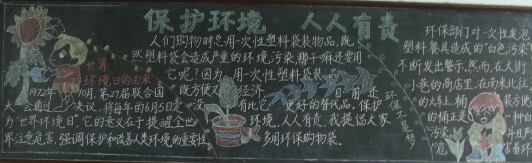 保护环境 人人有责
世界
环境日的由来
1972年 10月,第27届联合国
大会通过 决议,将每年的6月5日定
为"世界环境日"。它的意义在于提醒全世
界注意危害,强调保护和改善人类环境的重要性
人们购物时总用一次性塑料袋装物品,既
然塑料袋会造成严重的环境污染,那干麻还要用
它呢?因为,用一次性塑料袋装
既方便又 经济 目前还
没有比它 更好的替代品。保护
环境,人人有责,我提倡大家
多用环保购物袋。
环保不是
环保部门对一次性发泡
塑料餐具造成的"白色污染"
不断发出警示,然而,在大街
小巷的商店里,在南来北往
的火车上 桶装方
的桶 正是
污染